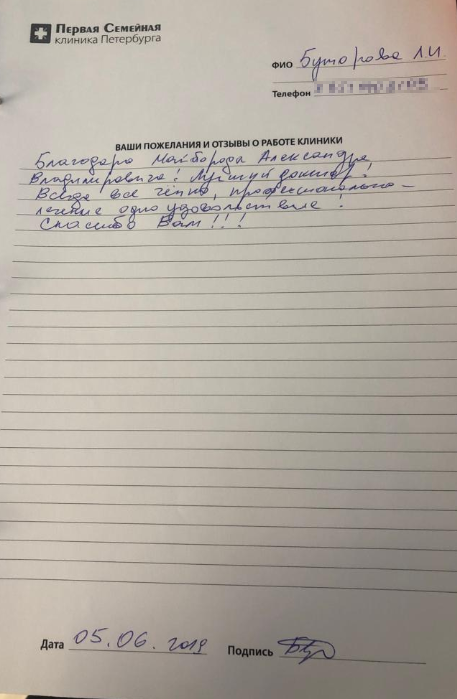 Первая Семейная
клиника Петербурга
ФИО Буторова Л.И.
Телефон
ВАШИ ПОЖЕЛАНИЯ И ОТЗЫВЫ О РАБОТЕ КЛИНИКИ
Благодарю Майборода Александра
Владимировича! Лучший доктор!
Всегда все четко, профессионально -
лечение одно удовольствие!
Спасибо Вам!!!
Дата 05.06.2019 Подпись